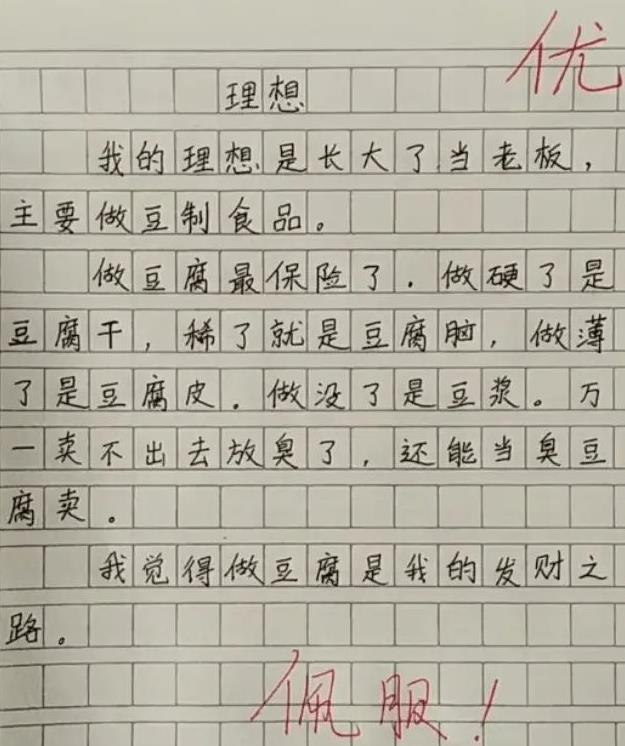 优
理想
我的理想是长大了当老板，
主要做豆制食品。
做豆腐最保险了．做硬了是
豆腐干，稀了就是豆腐脑，做薄
了是豆腐皮．做没了是豆浆。万
一卖不出去放臭了，还能当臭豆
腐卖。
我觉得做豆腐是我的发财之
路。
佩服！